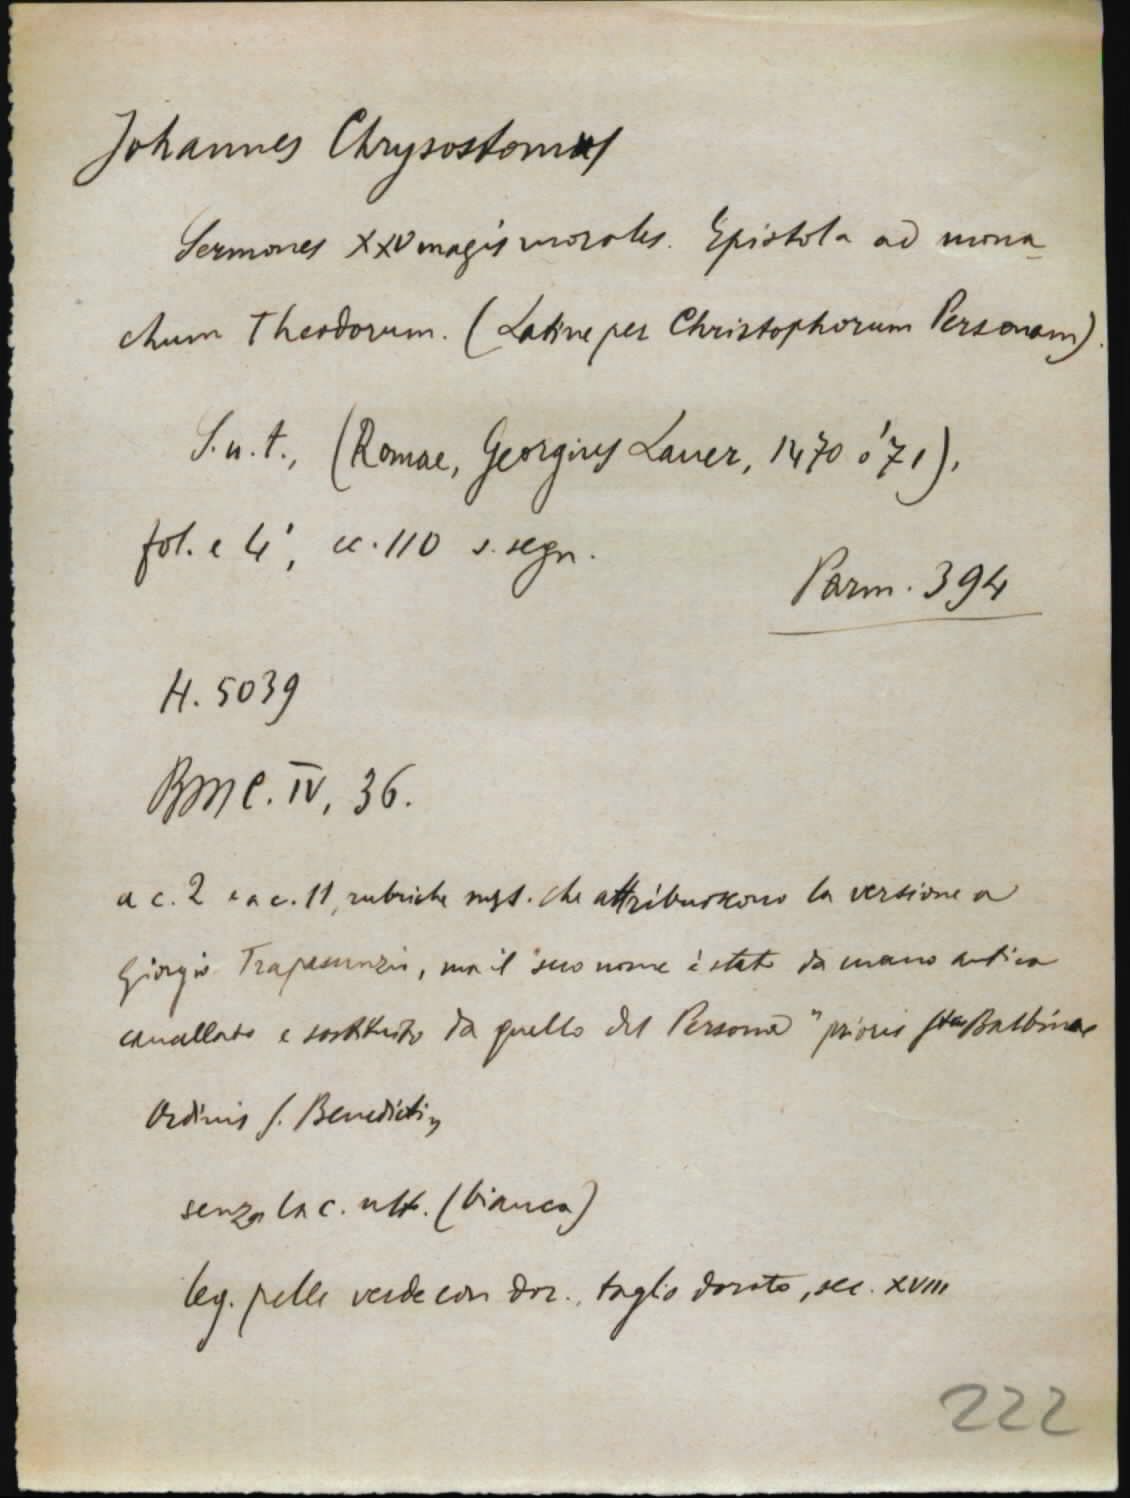 Johannes Chrysostomus
Sermones XXV magis morales. Epistola ad mona
chum Theodorum. (Latine per Christophorum Personam).
S.n.t., (Romae, Georgius Lauer, 1470 o '71),
fol. e 4°, cc. 110 s. segn.
Parm. 394
H. 5039
BMC. IV, 36.
a c. 2 e a c. 11, rubriche mss. che attribuiscono la versione a
Giorgio Trapesunzio, ma il suo nome è stato da mano antica
cancellato e sostituito da quello del Persona "prioris Stae Balbinae
Ordinis S. Benedicti"
senza la c. ult. (bianca)
leg. pelle verde con dor., taglio dorato, sec. XVIII
222